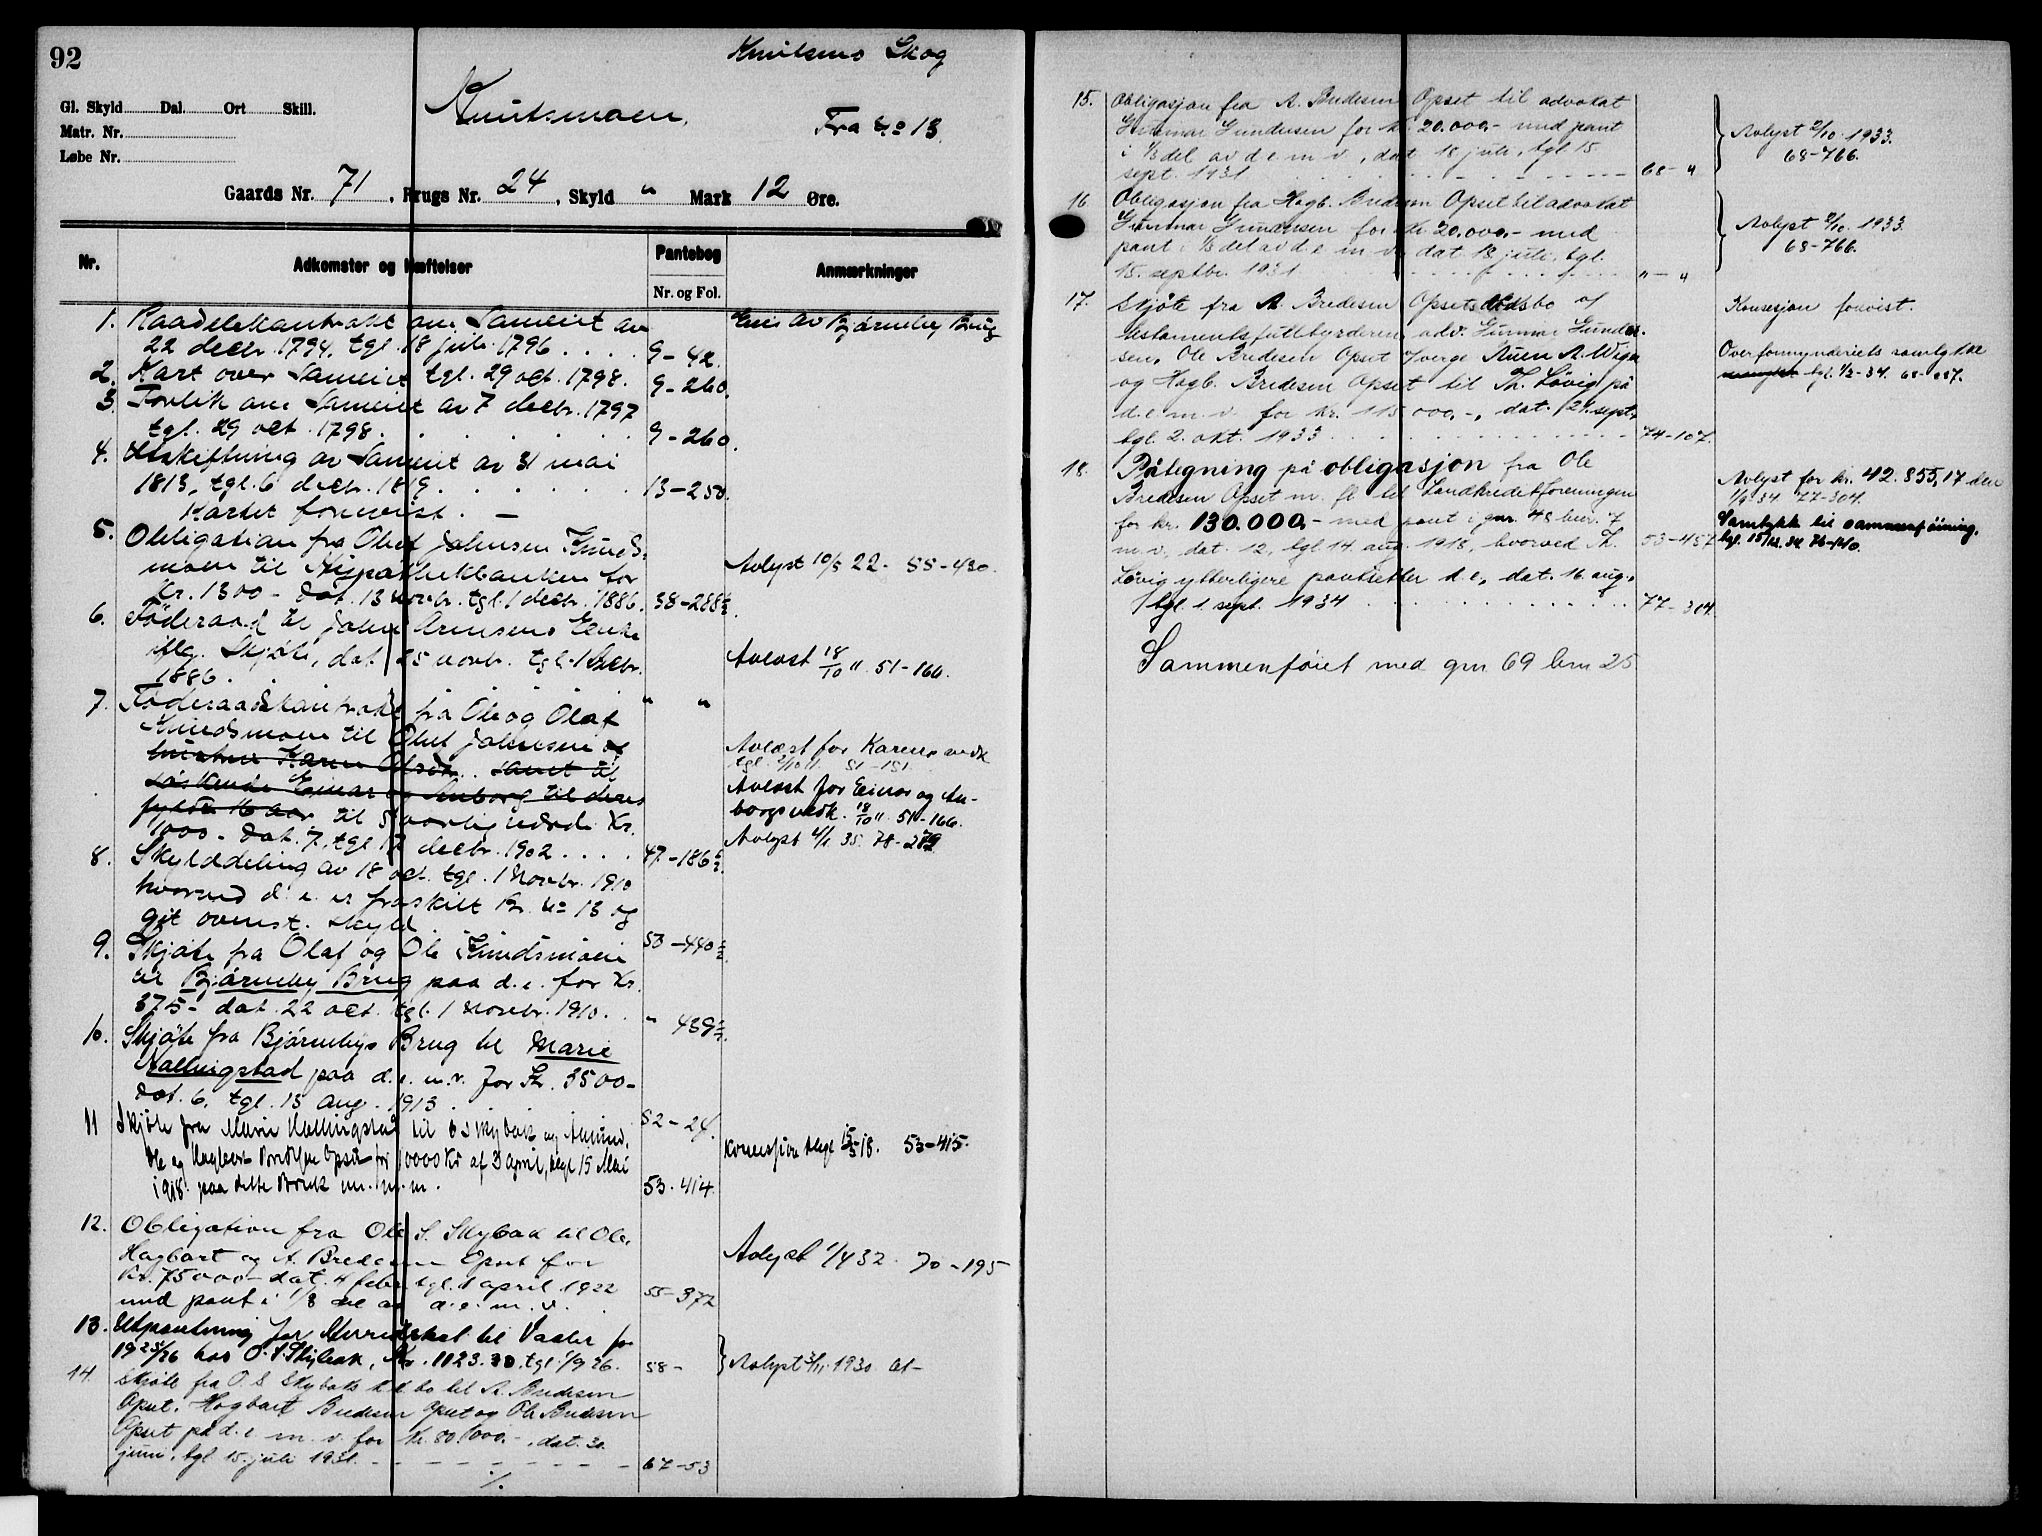 92
Knutsmo Skog
Gl. Skyld Dal. Ort Skill.
Matr. Nr.
Løbe Nr.
Knutsmoen.
Fra No 13.
Gaards Nr. 71, Brugs Nr. 24, Skyld " Mark 12 Øre.
Nr. Adkomster og Hæftelser Pantebog Nr. og Fol. Anmærkninger
1. Raadelskontrakt om Sameiet av Eies av Bjørneby Brug
22 decbr. 1794, tgl. 18 juli 1796 . . . . 9-42.
2. Kart over Sameiet tgl. 29 oct. 1798. 9-260.
3. Forlik om Sameiet av 7 decbr. 1797
tgl. 29 oct. 1798. 9-260.
4. Utskiftning av Sameiet av 31 mai
1813, tgl. 6 decbr. 1819. 13-250.
Kartet forevist. —
5. Obligation fra Oluf Johnsen Knuds-
moen til Hypothekbanken for Avlyst 10/5 22. 55-430.
Kr. 1300 - dat. 13 novbr. tgl. 1 decbr. 1886. 38-288
6. Føderaad til John Arnesens Enke
iflg. Skjøte, dat. 25 novbr. tgl. 1 decbr. Avlæst 18/10 11. 51-166.
1886. " "
7. Føderaadskontrakt fra Ole og Olaf
Knudsmoen til Oluf Johnsen og Avlæst for Karens vedk
hustru Karen Olsdtr. samt til tgl. 2/10 11. 51-151.
søskende Einar og Anborg til deres Avlæst for Einar og An-
fyldte 16 aar til 5 aarlig værdi Kr. borgs vedk. 18/10 11. 51-166.
1000 - dat. 7, tgl. 17 decbr. 1902 . . . . 47-186 Avlyst 4/1 35. 78-279
8. Skylddeling av 18 oct. tgl. 1 Novbr. 1910
hvorved d. e. er fraskilt Br. No 13 og
git ovenst. skyld 53-440
9. Skjøte fra Olaf og Ole Knudsmoen
til Bjørneby Brug paa d. e. for Kr.
375 - dat. 22 oct. tgl. 1 Novbr. 1910. . " 439
10. Skjøte fra Bjørneby Brug til Marie
Nallingstad paa d. e. m. v. for Kr. 3500 -
dat. 6, tgl. 15 aug. 1913. 52-24.
11 Skjøte fra Marie Nallingstad til O S Skybak og Amund,
Ole og Hagbart Bredesen Opset for 10000 Kr af 3 april, tlyst 15 Mai Konsesjon tlyst 15/5-18. 53-415.
1918 paa dette Bruk m. m. 53-414.
12. Obligation fra Ole S. Skybak til Ole,
Hagbart og A. Bredesen Opset for Avlyst 1/4 32. 70-195
Kr. 75000 - dat. 4 febr. tgl. 1 april 1922
med pant i 1/8 del av d. e. m. v. 55-372
13. Utpantning for Herredskat til Vaaler for
1925/26 hos O. S. Skybak, Kr. 1123.30, tgl. 1/9 26. 58- Avlyst 3/11 1930 61-
14. Skjøte fra O. S. Skybaks k.k. bo til A. Bredesen
Opset, Hagbart Bredesen Opset og Ole Bredesen
Opset på d. e m. v. for kr. 80.000.-, dat. 30
juni, tgl. 15. juli 1931. - - - - 67-53
./.
15. Obligasjon fra A. Bredesen Opset til advokat
Gunnar Gundersen for kr. 20.000.- med pant Avlyst 2/10. 1933.
i 1/3 del av d e m v, dat. 18 juli, tgl. 15. 68-766.
sept. 1931 68- "
16 Obligasjon fra Hagb. Bredesen Opset til advokat
Gunnar Gundersen for kr. 20.000.- med Avlyst 2/10. 1933.
pant i 1/3 del av d e m v dat. 18 juli, tgl. 68-766.
15. septbr. 1931 "- "
17. Skjøte fra A. Bredesen Opsets dødsbo v/ Konsesjon forevist.
testamentsfullbyrderen adv. Gunnar Gunder-
sen, Ole Bredesen Opset, verge Overformynderiets samtykke
og Hagb. Bredesen Opset til Th. Løvig på tgl. 1/2-34. 68-
d. e. m. v. for kr. 115 000.-, dat. 29. sept.,
tgl. 2. okt. 1933 74-107.
18. Påtegning på obligasjon fra Ole Avlyst for kr. 42.855,17 den
Bredesen Opset m. fl. til Landkreditforeningen 1/9 34 77-304.
for kr. 130.000,- med pant i gnr. 48 bnr. 7 Samtykke til sammenføining.
m. v, dat. 12, tgl. 14. aug. 1918, hvorved Th. 53-457 tgl. 15/12. 34 76-140.
Løvig ytterligere pantsetter d. e., dat. 16. aug.,
tgl. 1 sept. 1934 77-304.
Sammenføiet med gnr 69 bnr 25